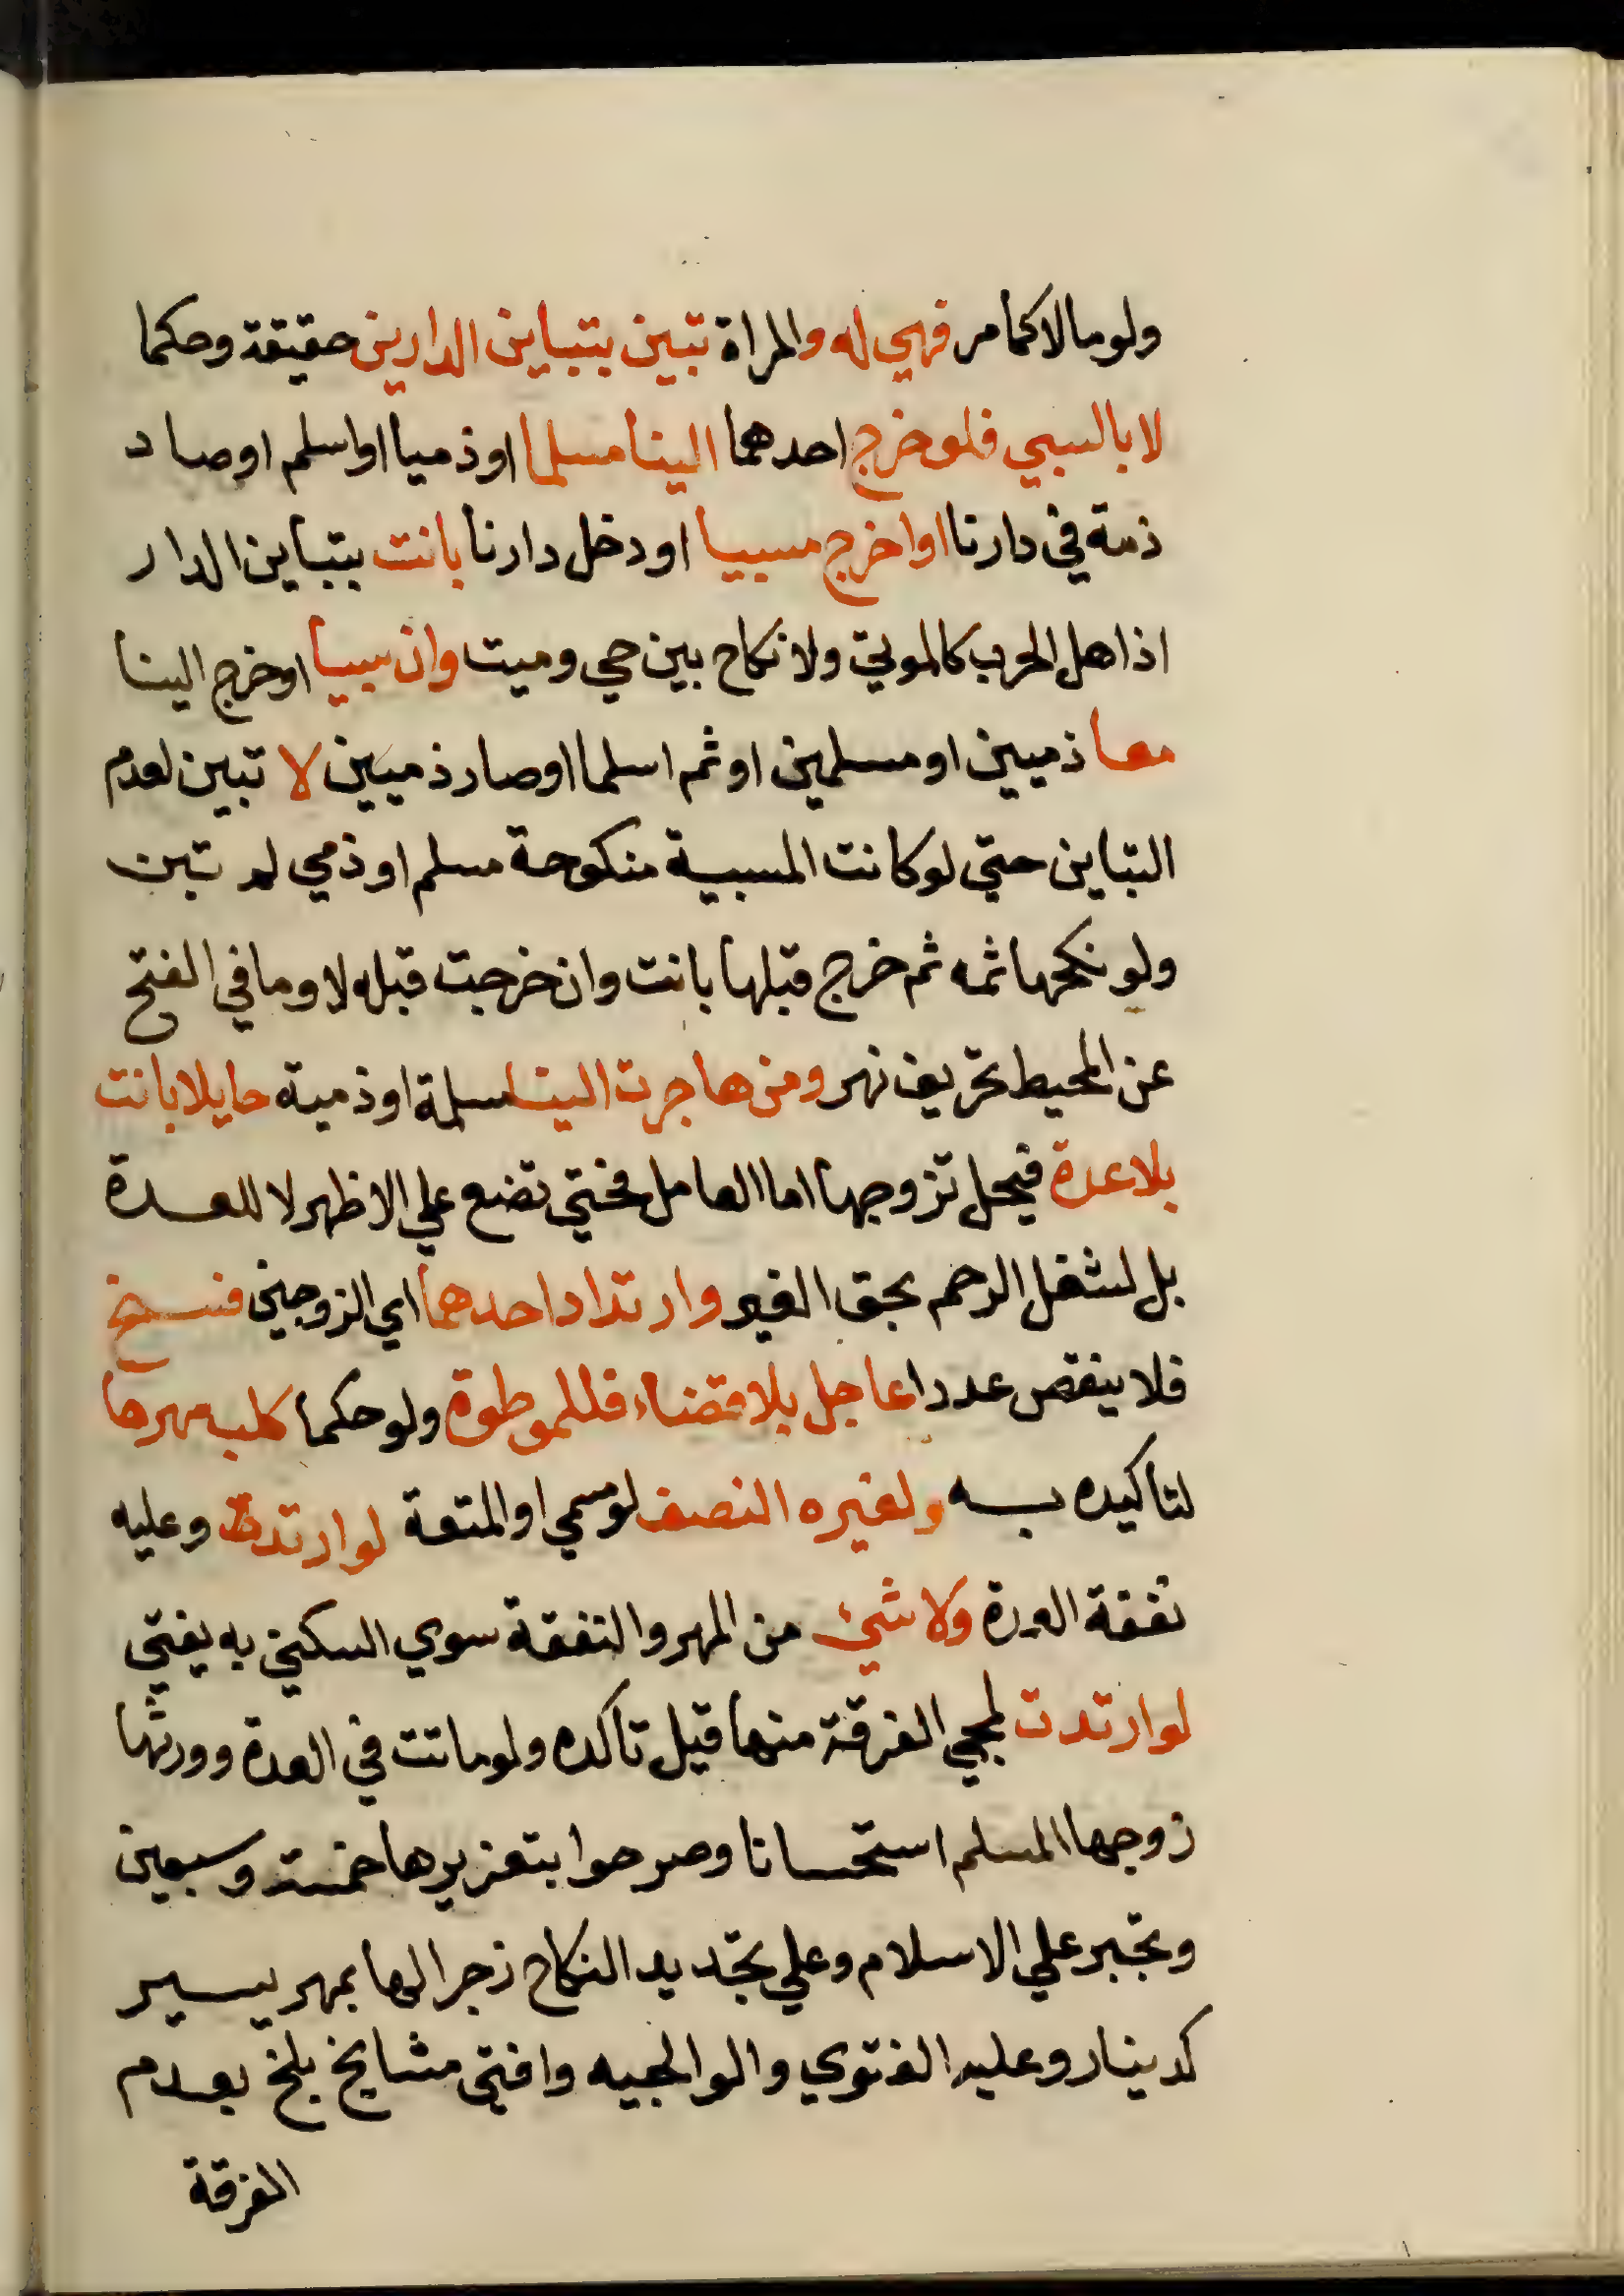 ولو مالا كما مر فهي له والمراة تبين بتباين الدارين حقيقة وحكما
لا بالسبي فلو خرج احدهما الينا مسلما او ذميا او اسلم او صار
ذمة في دارنا او اخرج مسبيا او دخل دارنا بانت بتباين الدار
اذ اهل الحرب كالموتي ولا نكاح بين حي وميت وان سبيا او خرج الينا
معا ذميين او مسلمين او ثم اسلما او صار ذميين لا تبين لعدم
التباين حتي لو كانت المسبية منكوحة مسلم او ذمي لم تبن
ولو نكحها ثمه ثم خرج قبلها بانت وان خرجت قبله لا وما في الفتح
عن المحيط تحريف نهر ومن هاجرت الينا مسلمة او ذمية حايلا بانت
بلا عدة فيحل تزوجها اما الحامل فحتي تضع علي الاظهر لا للعدة
بل لشغل الرحم بحق الغير وارتداد احدهما اي الزوجين فسخ
فلا ينقص عددا عاجل بلا قضاء فللموطوة ولو حكما كل مهرها
لتاكيده به ولغيره النصف لو سمي او المتعة لو ارتد وعليه
نفقة العدة ولا شيئ من المهر والنفقة سوي السكني به يفتي
لو ارتدت لمجي الفرقة منها قبل تاكده ولو ماتت في العدة وورثها
زوجها المسلم استحسانا وصرحوا بتعزيرها خمسة وسبعين
وتجبر علي الاسلام وعلي تجديد النكاح زجرا لها بمهر يسير
كدينار وعليه الفتوي والوالجيه وافتي مشايخ بلخ بعدم
الفرقة